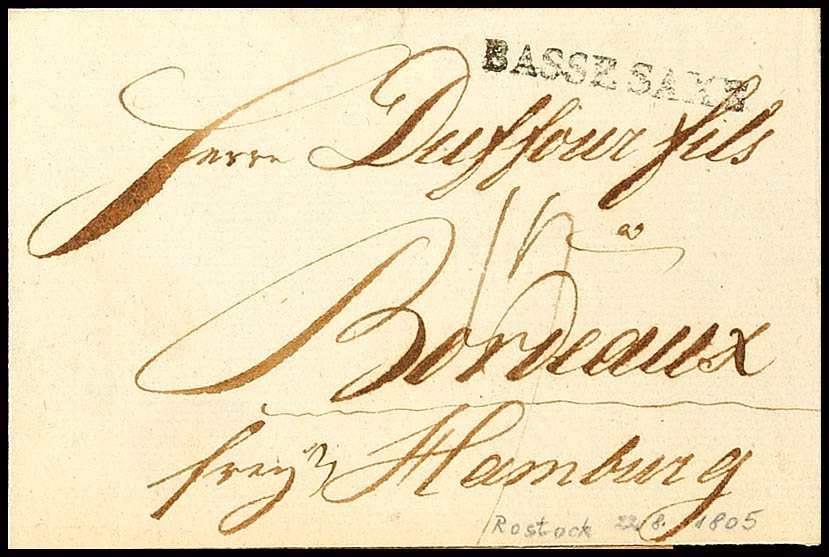 BASSE SAXE
Herrn Duffour fils
a
Bordeaux
frey Hamburg
Rostock 22.8.1805